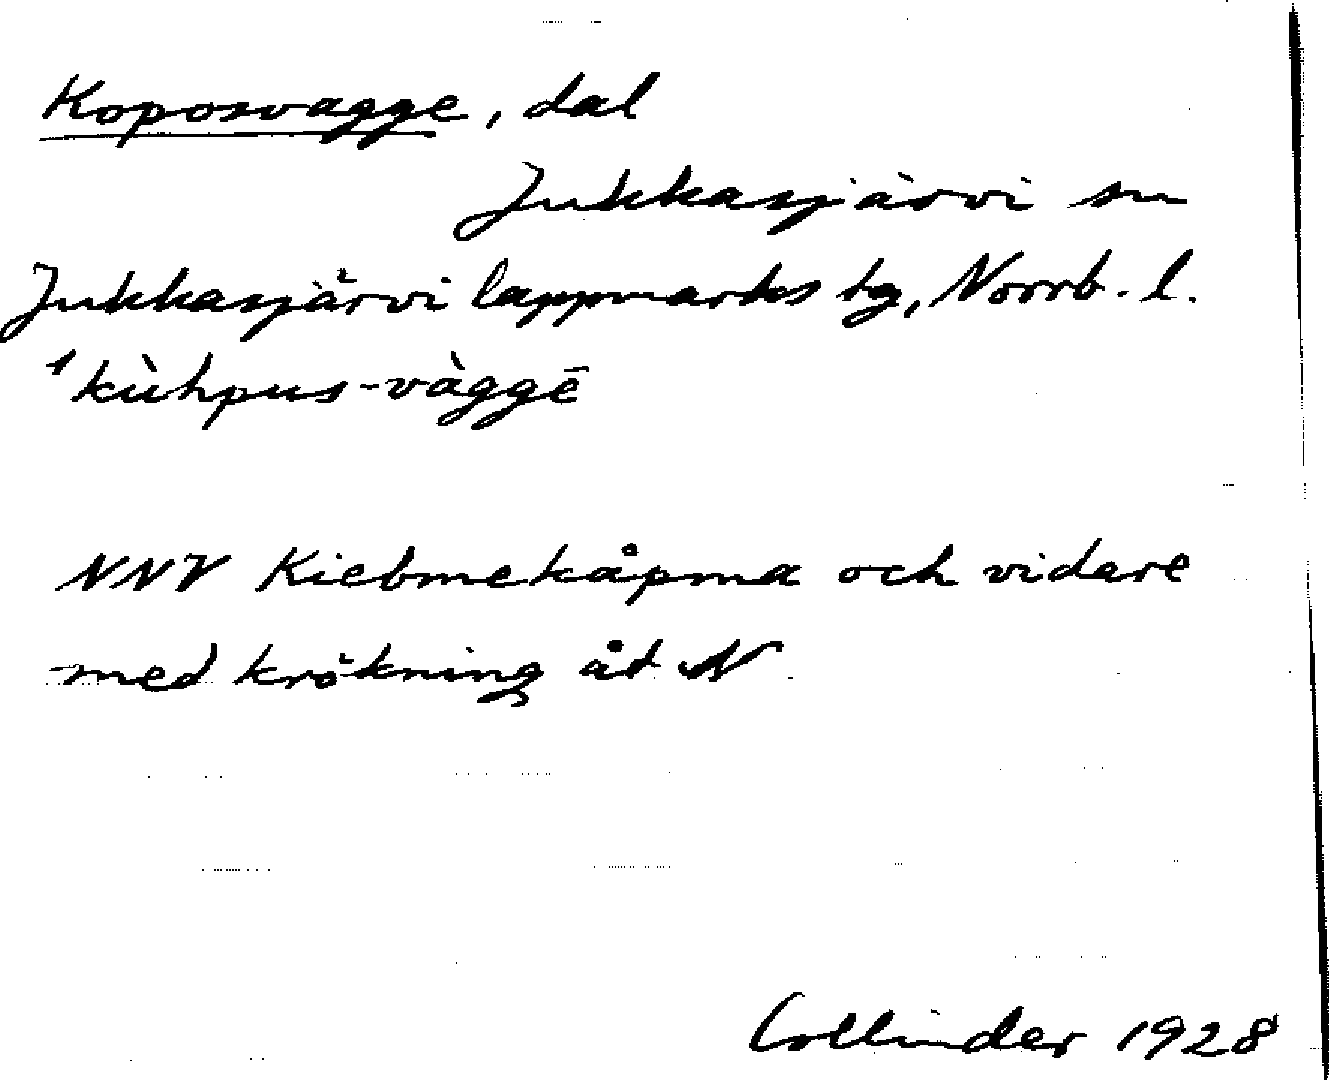 Koposvagge, dal
Jukkasjärvi sn
Jukkasjärvi lappmarks tg, Norrb. l.
¹kùhpus-vàggē
NNV Kiebmekåpma och vidare
med krökning åt N
Collinder 1928